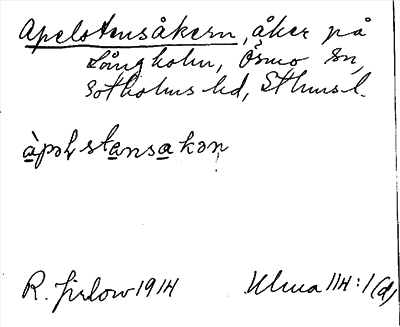 Apelstensåkern, åker på
Långholm, Ösmo sn,
Sotholms hd, Sthms l.
àpəlstensakən
R. Jirlow 1914 Ulma 114:1 (d)